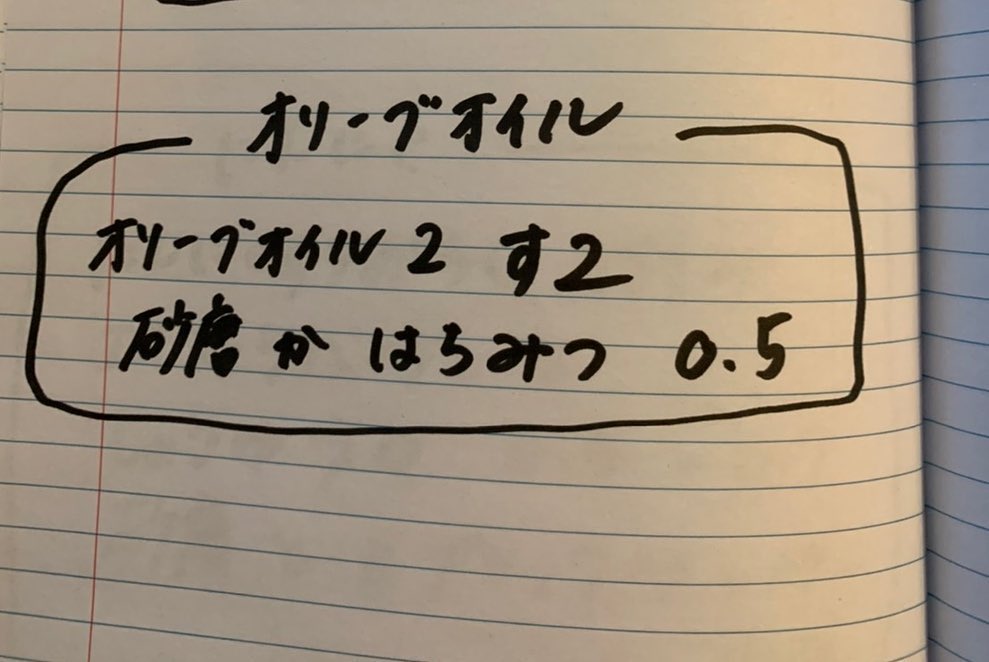 オリーブオイル
オリーブオイル 2 す2
砂糖 か はちみつ 0.5